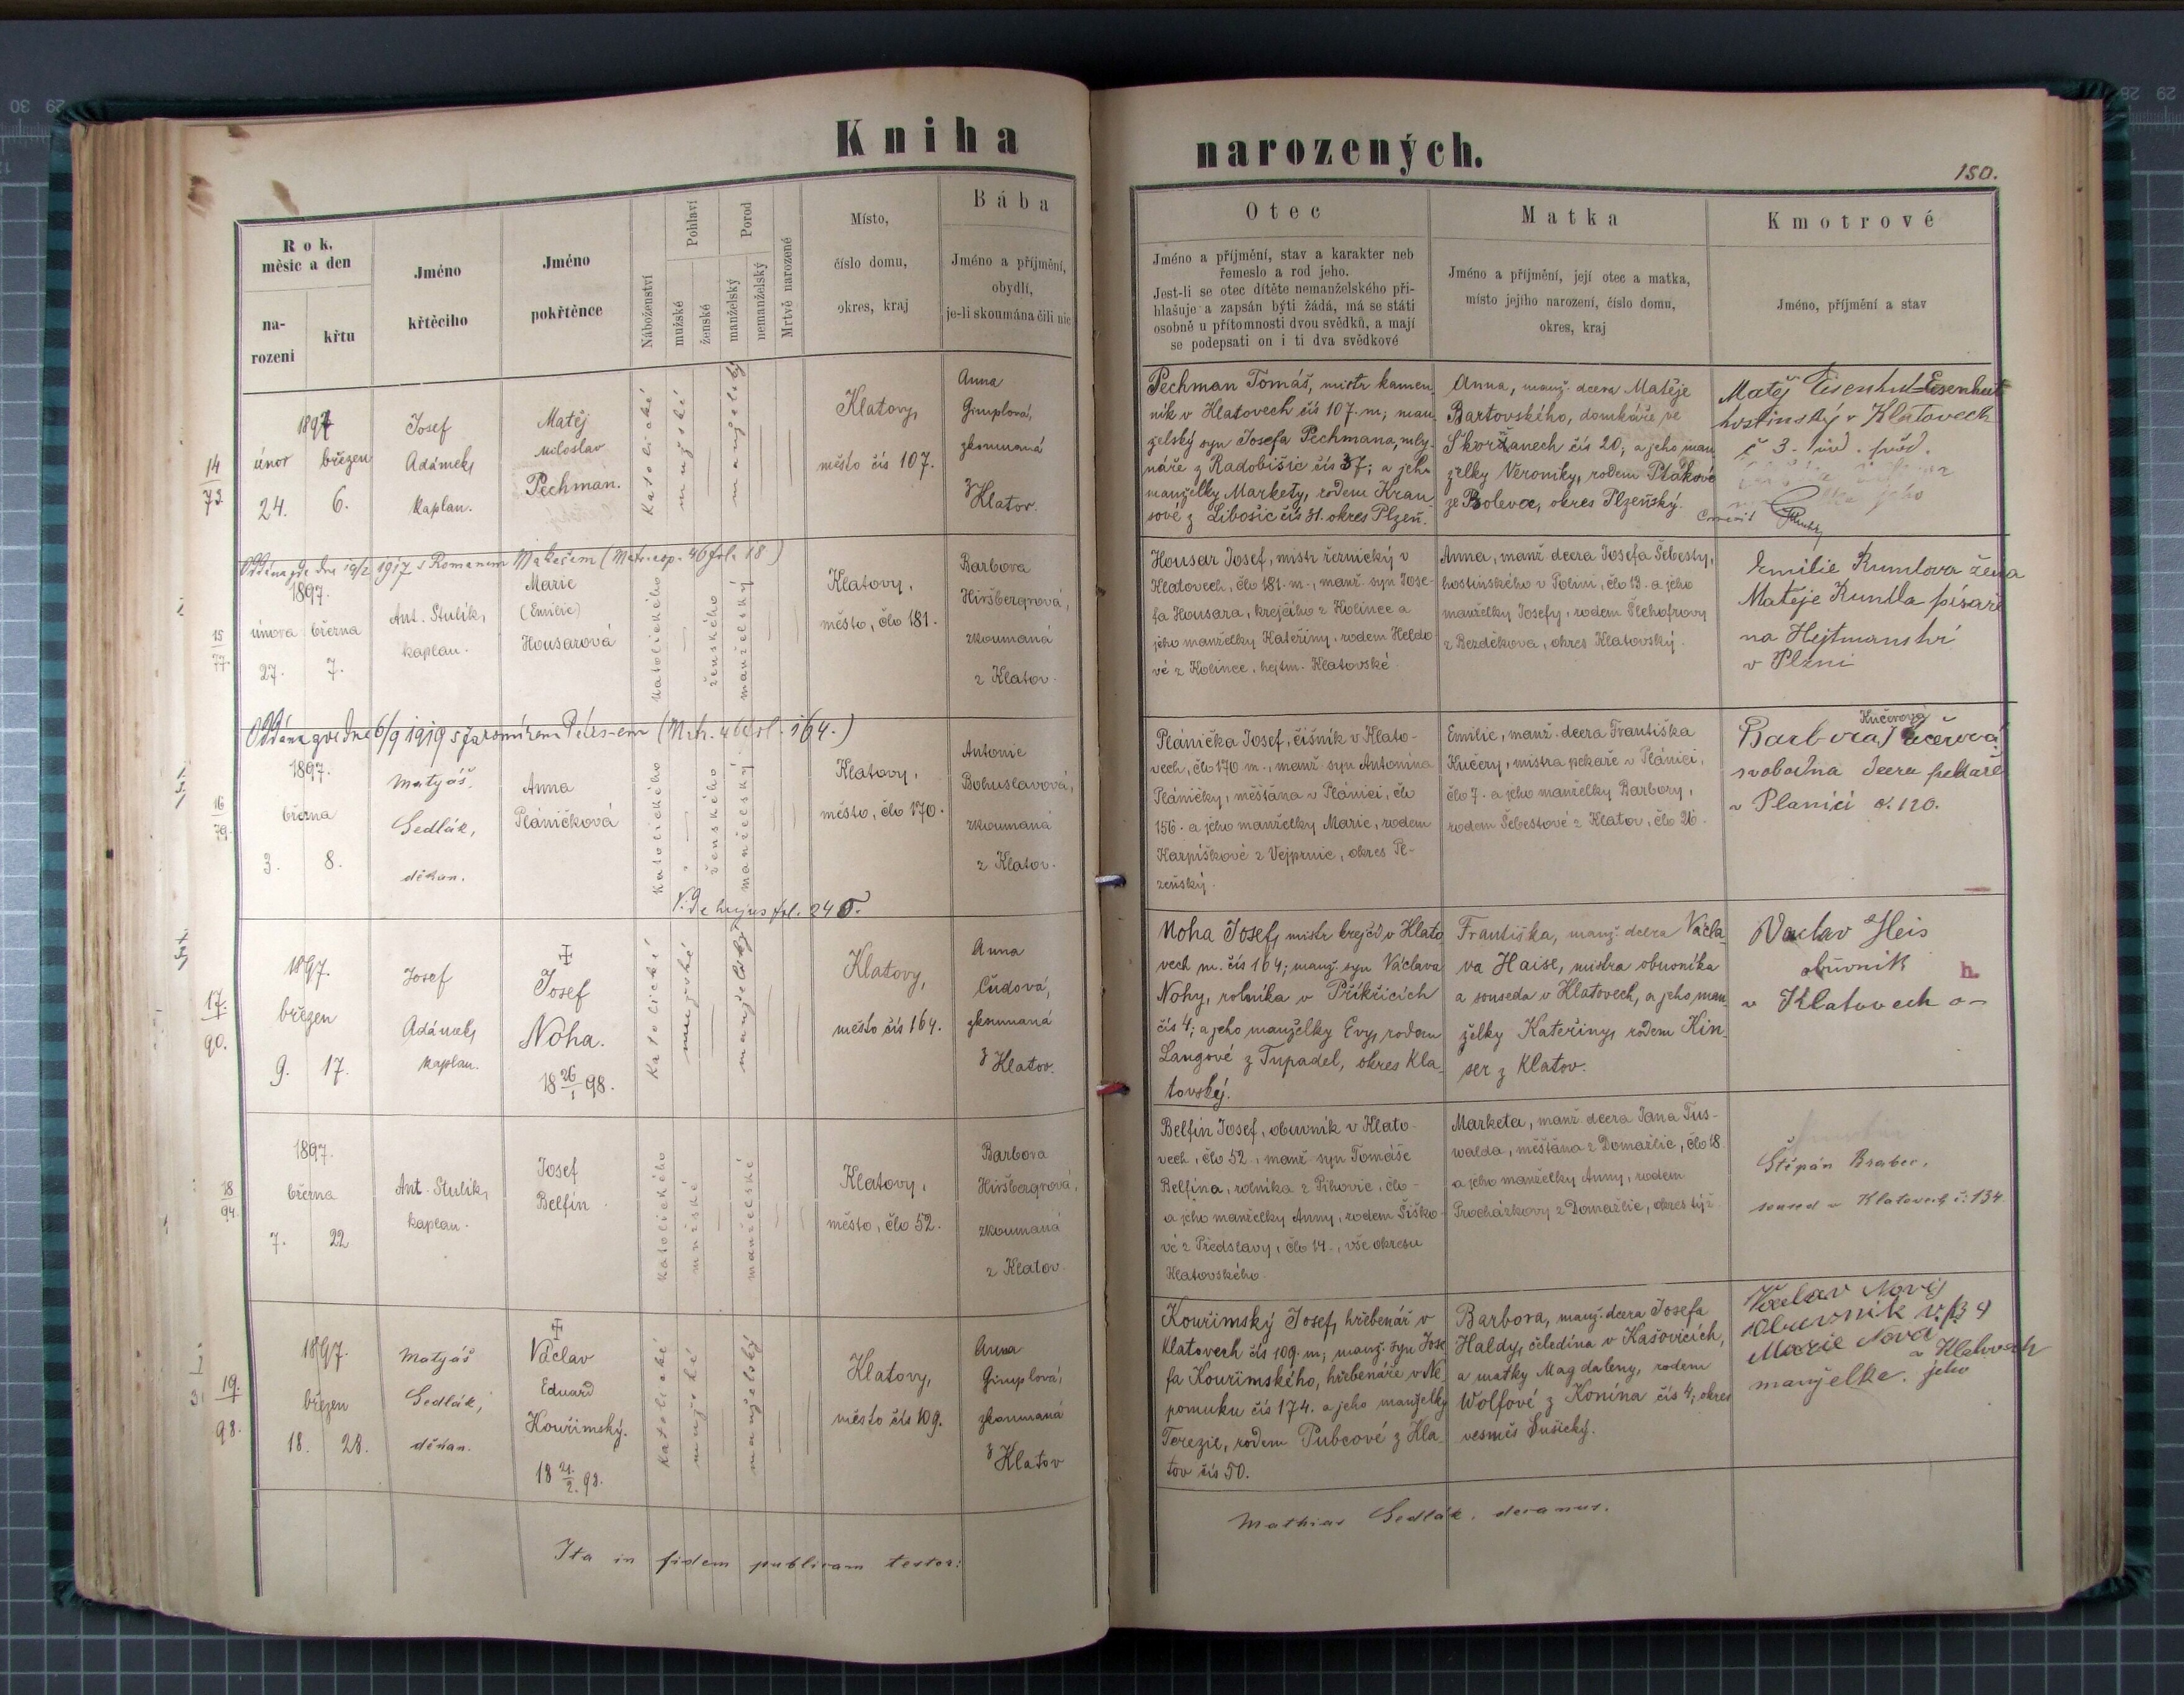 Kniha
narozených.
150.
Rok, měsíc a den
na-
rozeni
křtu
Jméno
křtěcího
Jméno
pokřtěnce
Náboženství
Pohlaví
mužské
ženské
Porod
manželský
nemanželský
Mrtvě narozené
Místo,
číslo domu,
okres, kraj
Bába
Jméno a příjmění,
obydlí,
je-li skoumána čili nic
Otec
Jméno a příjmění, stav a karakter neb
řemeslo a rod jeho.
Jest-li se otec dítěte nemanželského při-
hlašuje a zapsán býti žádá, má se státi
osobně u přítomnosti dvou svědků, a mají
se podepsati on i ti dva svědkové
Matka
Jméno a příjmění, její otec a matka,
místo jejího narození, číslo domu,
okres, kraj
Kmotrové
Jméno, příjmění a stav
14
73
1897
únor březen
24. 6.
Josef
Adámek,
kaplan.
Matěj
Miloslav
Pechman.
Katolické
mužské
manželský
Klatovy,
město čís 107.
Anna
Gimplová,
zkoumaná
z Klatov.
Pechman Tomáš, mistr kamen
ník v Klatovech čís 107. m; man
želský syn Josefa Pechmana, mly-
náře z Radobišic čís 37; a jeho
manželky Markety, rodem Krau
sové z Libošic čís 31. okres Plzeň.
Anna, manž. dcera Matěje
Bartovského, domkáře ve
Skořanech čís 20; a jeho man
želky Veroniky, rodem Ptákové
ze Bolevce, okres Plzeňský.
Matěj Eisenhut Eisenhut
hostinský v Klatovech
č 3. předm.
Oddána zde dne 19/2 1917 s Romanem Makešem (Matr. cop. 46 fol. 18)
15
77.
1897.
února března
27. 7.
Ant. Stulík,
kaplan.
Marie
(Emilie)
Housarová
Katolického
ženského
manželský
Klatovy,
město, čclo 181.
Barbora
Hiršbergrová,
zkoumaná
z Klatov.
Housar Josef, mistr řeznický v
Klatovech, čclo 181. m., manž. syn Jose-
fa Housara, krejčího z Kolince a
jeho manželky Kateřiny, rodem Heldo
vé z Kolince, hejtm. Klatovské.
Anna, manž dcera Josefa Šebesty,
hostinského v Polini, čclo 13. a jeho
manželky Josefy, rodem Šlehofrovy
z Bezděkova, okres Klatovský.
Emilie Rumlova žena
Matěje Rumlla písaře
na Hejtmanství
v Plzni
Oddána zde dne 6/9 1919 s Jaromírem Peters-em (Matr. 46 fol. 164.)
16
79.
1897.
března
3. 8.
Matyáš
Sedlák,
děkan.
Anna
Pláničková
Katolického
ženského
manželský
Klatovy,
město, čclo 170.
Antonie
Bohuslavová,
zkoumaná
z Klatov.
Vide hujus fol. 245.
Plánička Josef, číšník v Klato-
vech, čclo 170 m., manž. syn Antonína
Pláničky, měšťana v Plánici, čclo
156. a jeho manželky Marie, rodem
Karpíškové z Vejprnic, okres Pl-
zeňský.
Emilie, manž. dcera Františka
Kučery, mistra pekaře v Plánici,
čclo 7. a jeho manželky Barbory,
rodem Šebestové z Klatov, čclo 26.
Kučerova
Barbora Kučerová
svobodna dcera pekaře
v Planici č. 120.
17.
90.
1897.
březen
9. 17.
Josef
Adámek,
kaplan.
Josef
Noha.
18 26/1 98.
Katolické
mužské
manželský
Klatovy,
město čís 164.
Anna
Čudová,
zkoumaná
z Klatov.
Noha Josef, mistr krejčí v Klato
vech m. čís 164; manž. syn Václava
Nohy, rolníka v Příkřicích
čís 4; a jeho manželky Evy, rodem
Langové z Tupadel, okres Kla
tovský.
Františka, manž. dcera Václa
va Haise, mistra obuvníka
a souseda v Klatovech, a jeho man
želky Kateřiny, rodem Kin
ser z Klatov.
Vaclav Heis
obuvník
v Klatovech
h.
18
94.
1897.
března
7. 22
Ant. Stulík,
kaplan.
Josef
Belfín
Katolického
mužské
manželské
Klatovy,
město, čclo 52.
Barbora
Hiršbergrová,
zkoumaná
z Klatov.
Belfín Josef, obuvník v Klato-
vech, čclo 52., manž. syn Tomáše
Belfína, rolníka z Pihovic, čclo -
a jeho manželky Anny, rodem Šiško-
vé z Předslavy, čclo 14., vše okresu
Klatovského.
Marketa, manž dcera Jana Tus-
walda, měšťana z Domažlic, čclo 18.
a jeho manželky Anny, rodem
Procházkovy z Domažlic, okres týž.
Štěpán Brabec,
soused v Klatovech č. 134.
19.
98.
1897.
březen
18. 28.
Matyáš
Sedlák,
děkan.
Václav
Eduard
Kouřimský.
18 21./2. 98.
Katolické
mužské
manželský
Klatovy,
město čís 109.
Anna
Gimplová,
zkoumaná
z Klatov
Kouřimský Josef, hřebenář v
Klatovech čís 109. m; manž. syn Jose
fa Kouřimského, hřebenáře v Ne
pomuku čís 174. a jeho manželky
Terezie, rodem Pubcové z Kla
tov čís 50.
Barbora, manž. dcera Josefa
Haldy, čeledína v Kašovicích,
a matky Magdaleny, rodem
Wolfové z Konína čís 4; okres
vesměs Sušický.
Václav Nový
obuvník
Marie Nová
v Klatovech
manželka jeho
Ita in fidem publicam testor:
Mathias Sedlák, decanus.